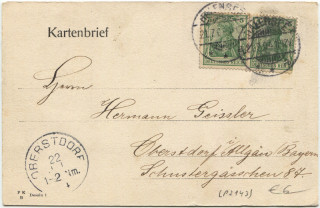 Kartenbrief
Herrn
Hermann Geissler
Oberstdorf Allgäu Bayern
Schustergässchen 84
OBERSTDORF
22
1-2 Nm.
(P2143)
€6